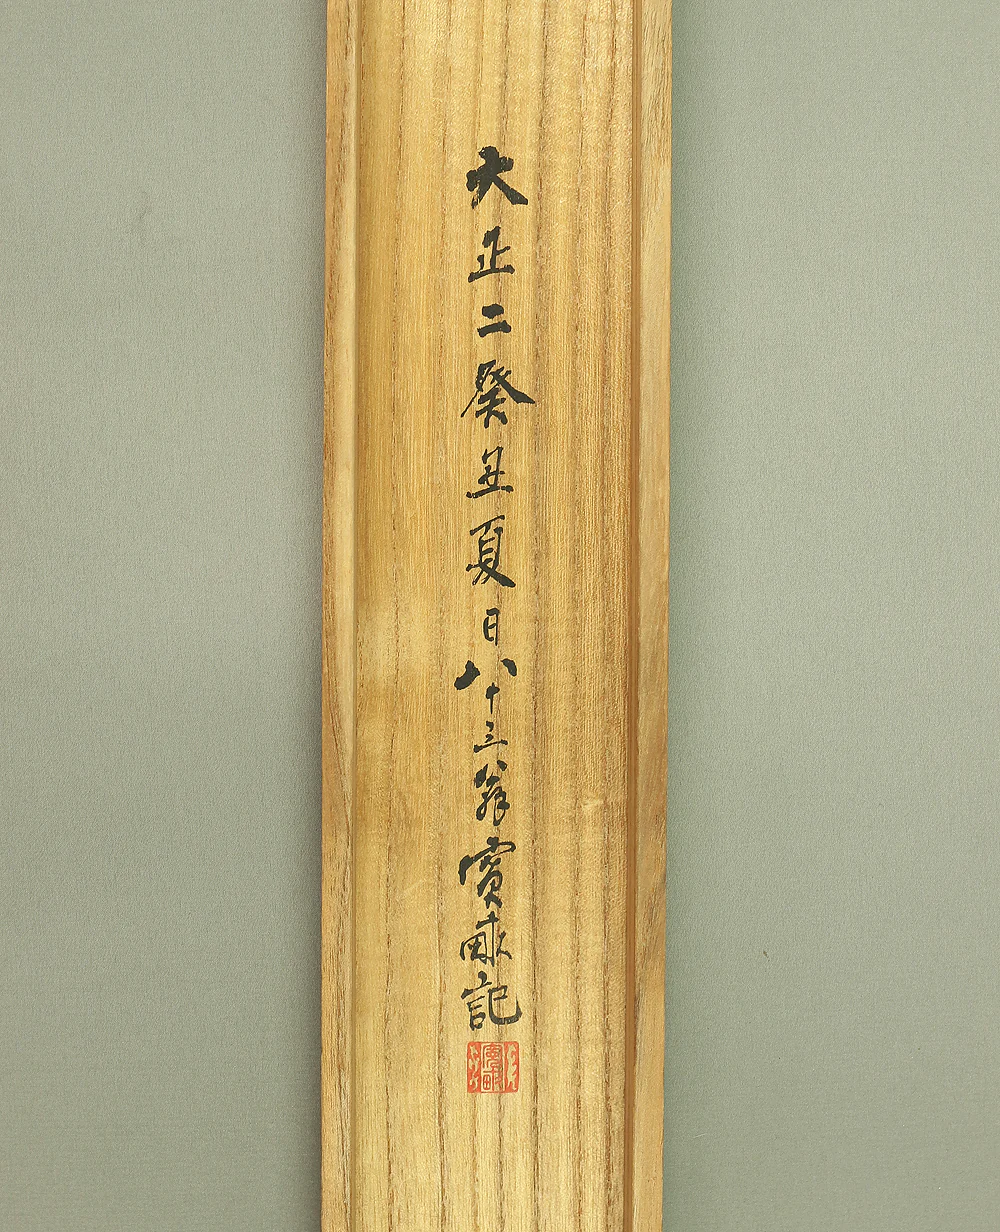 大正二癸丑夏日八十三翁記